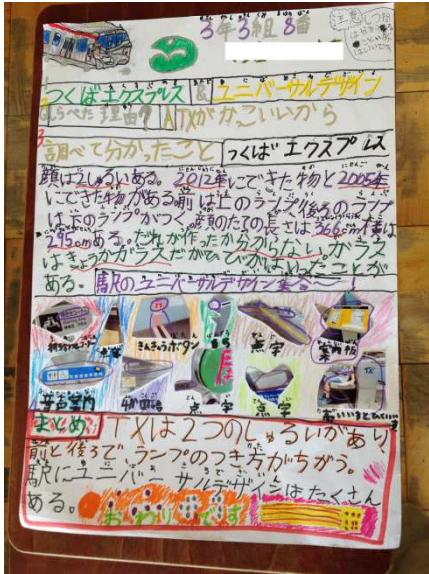 3年3組8番
注意
つくばエクスプレス & ユニバーサルデザイン
しらべた理由? A TXがかこいいから
調べて分かったこと つくばエクスプレス
顔は2しゅるいある。2012年にできた物と2005年
にできた物がある。前は上のランプ後ろのランプ
は下のランプがつく。顔のたての長さは366cm横は
295cmある。だれが作ったか分からない。ガラス
はきょうかガラスだがひびがはいったことが
ある。駅のユニバーサルデザイン集合〜!
きんきゅうボタン
点字
案内板
音声案内
点字
点字
まとめ TXは2つのしゅるいがあり
前と後ろで、ランプのつき方がちがう。
駅にユニバーサルデザインはたくさん
ある。
おわりです